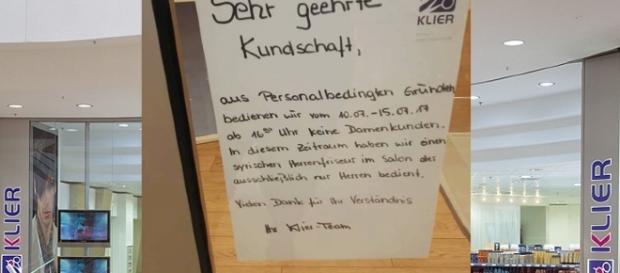 Sehr geehrte
Kundschaft,
KLIER
aus Personalbedingten Gründen
bedienen wir vom 10.07.-15.07.17
ab 16⁰⁰ Uhr keine Damenkunden.
In diesem Zeitraum haben wir einen
syrischen Herrenfriseur im Salon der
ausschließlich nur Herren bedient.
Vielen Danke für Ihr Verständnis
Ihr Klier-Team
KLIER
KLIER